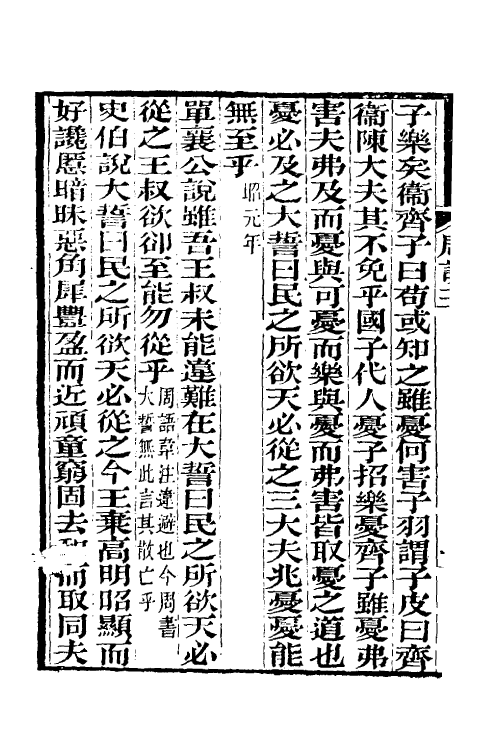 子樂矣衞齊子曰苟或知之雖憂何害子羽謂子皮曰齊
衞陳大夫其不免乎國子代人憂子招樂憂齊子雖憂弗
害夫弗及而憂與可憂而樂與憂而弗害皆取憂之道也
憂必及之大誓曰民之所欲天必從之三大夫兆憂憂能
無至乎昭元年
單襄公說雖吾王叔未能違難在大誓曰民之所欲天必
從之王叔欲卻至能勿從乎周語韋注違避也今周書
大誓無此言其散亡乎
史伯說大誓曰民之所欲天必從之今王棄高明昭顯而
好讒慝暗昧惡角犀豐盈而近頑童窮固去和而取同夫